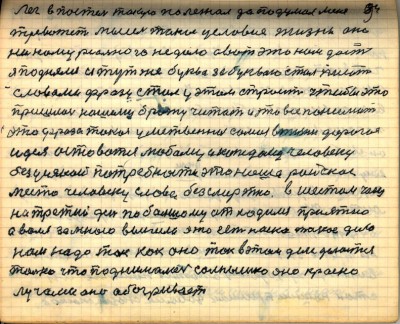 Лег в постель такую полежал да подумал меня
тревожит мысль такая условие жизни оно
никому реального не дало а вот это нам даст
я поднялся и тут же буква за буквою стал писать
словами фразу стал у этом строит чтобы это
пришлось нашему брату читат и то всё понимат
эта фраза такая умственная самая в жизни дорогая
идея оставатся любому и каждому человеку
без всякой потребности это наше райское
место человеку слова бессмертно. в шестом часу
на третий ден по большому отходили приятно
а воля за много вышла это ест наше такое дело
нам надо так как оно так в этом деле делается
только что поднималось солнышко оно красно
лучами оно обогривает